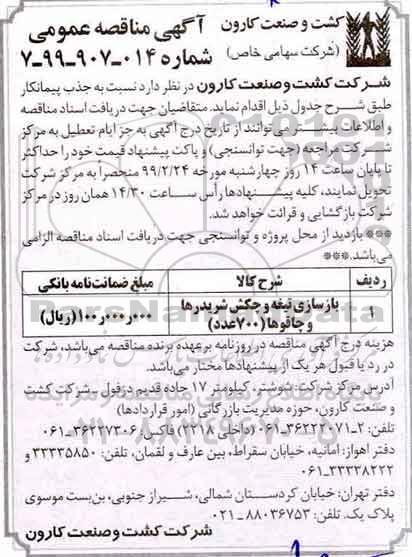 کشت و صنعت کارون
(شرکت سهامی خاص)
آگهی مناقصه عمومی
شماره ۰۱۴-۹۰۷-۹۹-۷
شرکت کشت و صنعت کارون در نظر دارد نسبت به جذب پیمانکار
طبق شرح جدول ذیل اقدام نماید. متقاضیان جهت دریافت اسناد مناقصه
و اطلاعات بیشتر می‌توانند از تاریخ درج آگهی به جز ایام تعطیل به مرکز
شرکت مراجعه (جهت توانسنجی) و پاکت پیشنهاد قیمت خود را حداکثر
تا پایان ساعت ۱۴ روز چهارشنبه مورخه ۹۹/۲/۲۴ منحصرا به مرکز شرکت
تحویل نمایند، کلیه پیشنهادها رأس ساعت ۱۴/۳۰ همان روز در مرکز
شرکت بازگشایی و قرائت خواهد شد.
*** بازدید از محل پروژه و توانسنجی جهت دریافت اسناد مناقصه الزامی
می‌باشد.***
ردیف شرح کالا مبلغ ضمانت‌نامه بانکی
۱ بازسازی تیغه و چکش شریدرها و چاقوها (۷۰۰عدد) ۱۰۰،۰۰۰،۰۰۰(ریال)
هزینه درج آگهی مناقصه در روزنامه برعهده برنده مناقصه می‌باشد، شرکت
در رد یا قبول هر یک از پیشنهادها مختار می‌باشد.
آدرس مرکز شرکت: شوشتر، کیلومتر ۱۷ جاده قدیم دزفول _ شرکت کشت
و صنعت کارون، حوزه مدیریت بازرگانی (امور قراردادها)
تلفن: ۲-۳۶۲۲۲۰۷۱-۰۶۱ (داخلی ۲۲۱۸) فاکس: ۳۶۲۲۷۳۰۶-۰۶۱
دفتر اهواز: امانیه، خیابان سقراط، بین عارف و لقمان، تلفن: ۳۳۳۳۵۸۵۰ و
۳۳۳۳۸۲۲۲-۰۶۱
دفتر تهران: خیابان کردستان شمالی، شیراز جنوبی، بن‌بست موسوی
پلاک یک. تلفن: ۸۸۰۳۶۷۵۳-۰۲۱
شرکت کشت و صنعت کارون